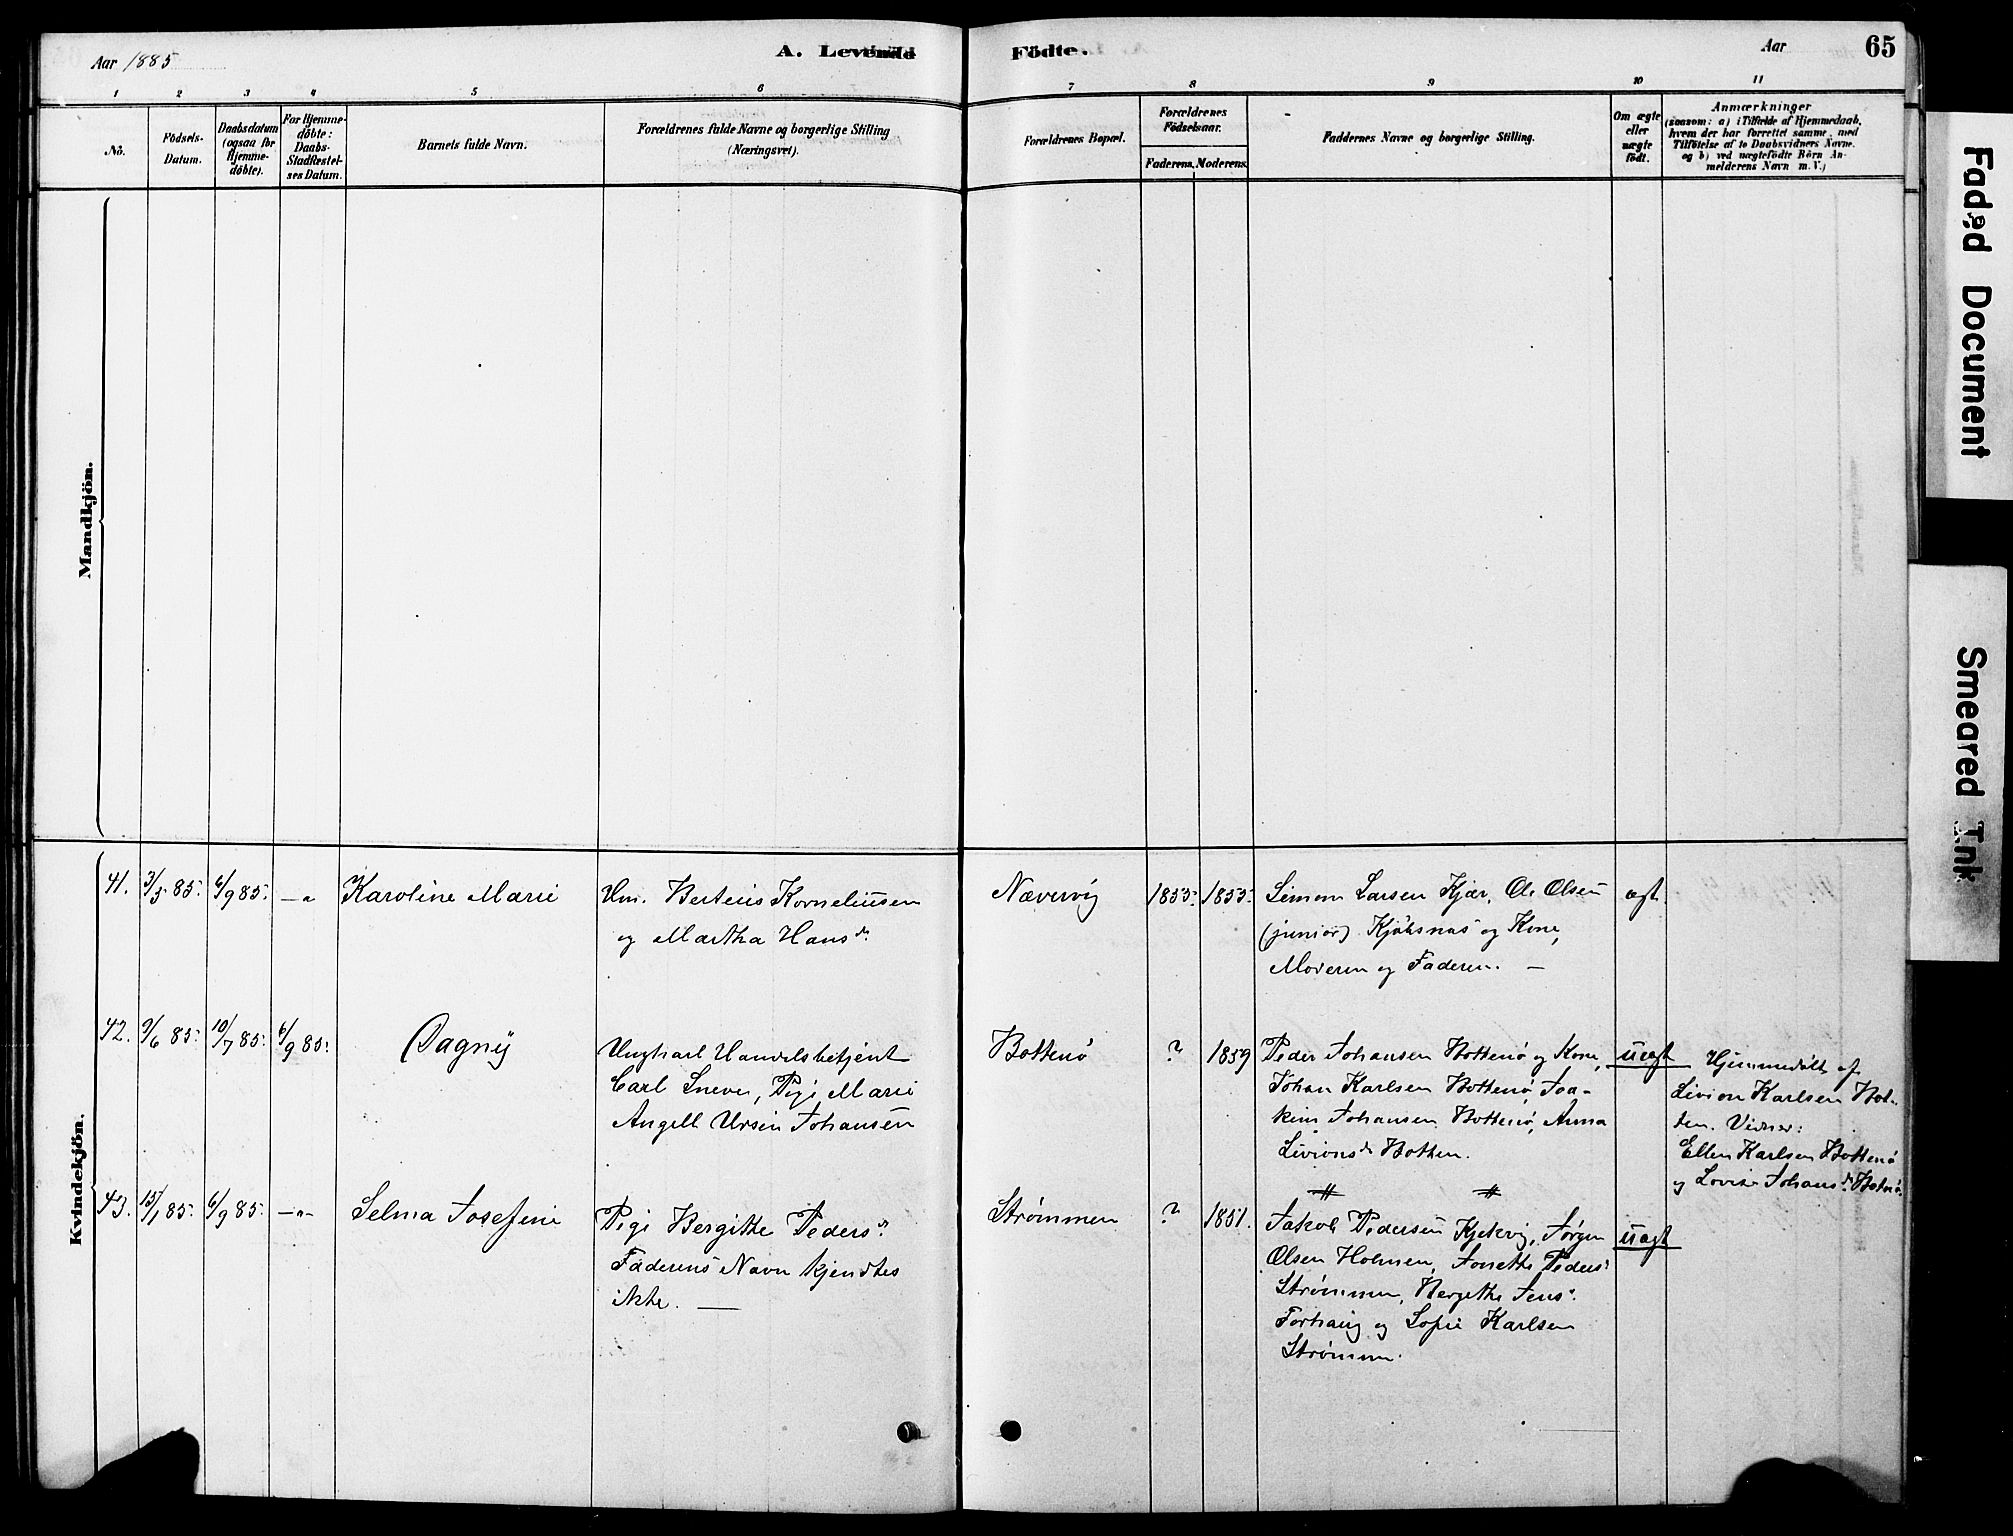 Aar 1885
A. Levende
Födte.
Aar
65
1 2 3 4 5 6 7 8 9 10 11
No.
Födsels-
Datum.
Daabsdatum
(ogsaa for
Hjemme-
döbte).
For Hjemme-
döbte:
Daabs-
Stadfæstel-
ses Datum.
Barnets fulde Navn.
Forældrenes fulde Navne og borgerlige Stilling
(Næringsvei).
Forældrenes Bopæl.
Forældrenes
Födselsaar.
Faderens. Moderens.
Faddernes Navne og borgerlige Stilling.
Om ægte
eller
uægte
födt.
Anmærkninger
(saasom: a) i Tilfælde af Hjemmedaab,
hvem der har forrettet samme, med
Tilföielse af to Daabsvidners Navne.
og b) ved uægtefödte Börn An-
melderens Navn m. V.)
Mandkjön.
Kvindekjön.
41. 3/5 85. 6/9 85. -"- Karoline Marie
Hm. Berteus Korneliussen
og Martha Hansdr.
Nævervig 1853. 1853.
Simon Larsen Kjær, Ole Olsen
(junior) Kjøksnæs og Kone,
Moderen og Faderen. —
ægt.
42. 9/6 85. 10/7 85. 6/9 85. Dagny
Ungkarl Handelsbetjent
Carl Sneve, Pige Marie
Angell Ursin Johansen
Bottenø ? 1859
Peder Johansen Bottenø og Kone,
Johan Karlsen Bottenø, Joa-
kim Johansen Bottenø, Anna
Livionsdr Botten.
uægt
Hjemmedøbt af
Livion Karlsen Bot-
ten. Vidner:
Ellen Karlsen Bottenø
og Lovise Johansdr. Botnø.
43. 15/1 85. 6/9 85. -"- Selma Josefine
Pige Bergitte Pedersdr.
Faderens Navn kjendtes
ikke. —
Strømmen ? 1851.
Jakob Pedersen Kjekvig, Jørgen
Olsen Holmen, Jonette Pedersdr
Strømmen, Bergethe Jensdr.
Forhaug og Sofie Karlsen
Strømmen.
uægt
Faded Document
Smeared Ink